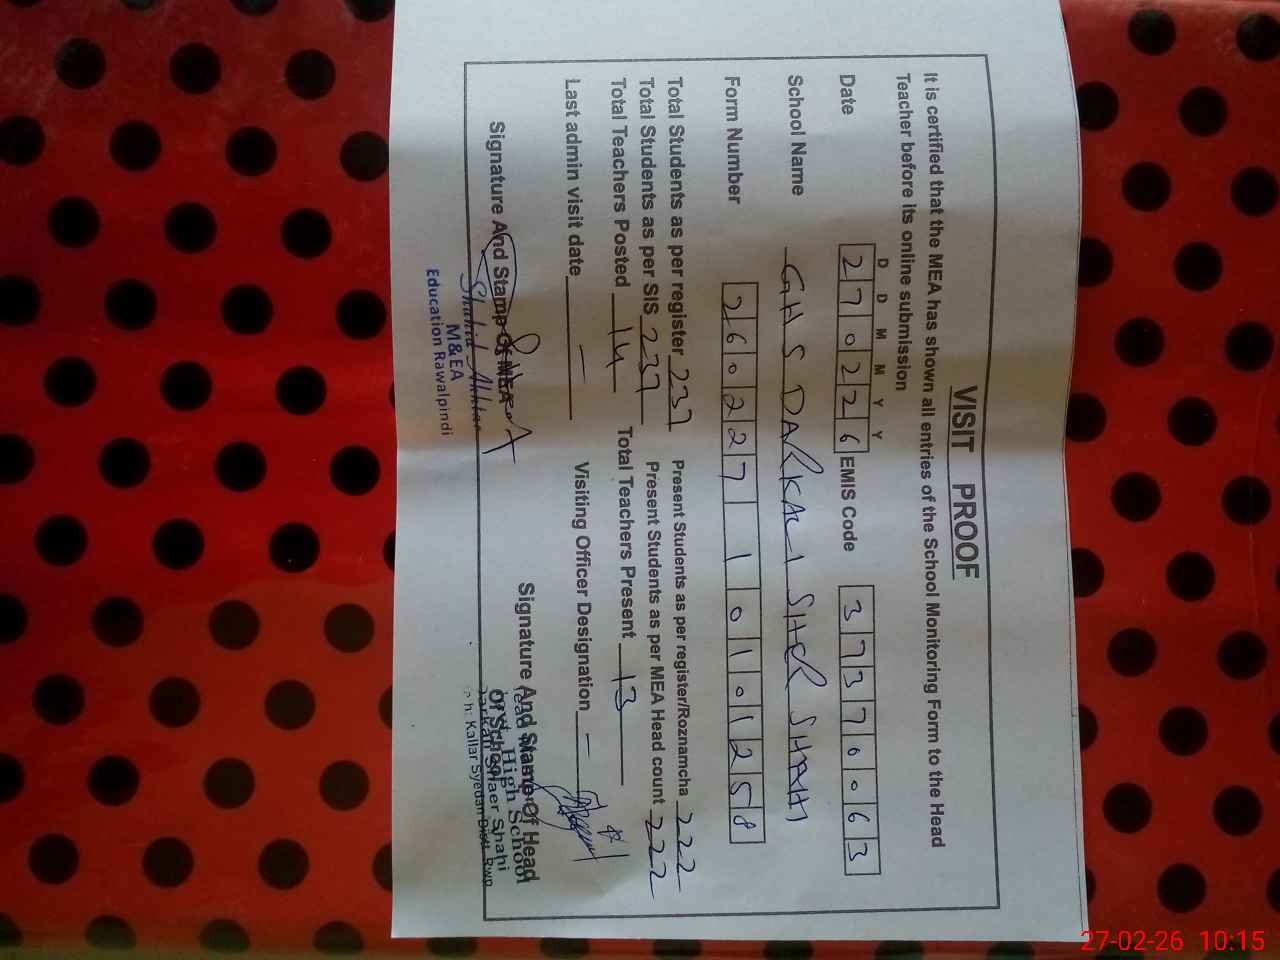 VISIT PROOF
It is certified that the MEA has shown all entries of the School Monitoring Form to the Head
Teacher before its online submission
D D M M Y Y
Date 2 7 0 2 2 6 EMIS Code 3 7 3 7 0 0 6 3
School Name GHS DARKALI SHER SHAHI
Form Number 2 6 0 2 2 7 1 0 1 0 1 2 5 8
Total Students as per register 237 Present Students as per register/Roznamcha 222
Total Students as per SIS 237 Present Students as per MEA Head count 222
Total Teachers Posted 14 Total Teachers Present 13
Last admin visit date — Visiting Officer Designation —
Signature And Stamp Of MEA Signature And Stamp Of Head
Of School
Shahid Akhtar
M&EA
Education Rawalpindi
High School
Shaer Shahi
Kallar Syedan Distt Rwp
27-02-26 10:15